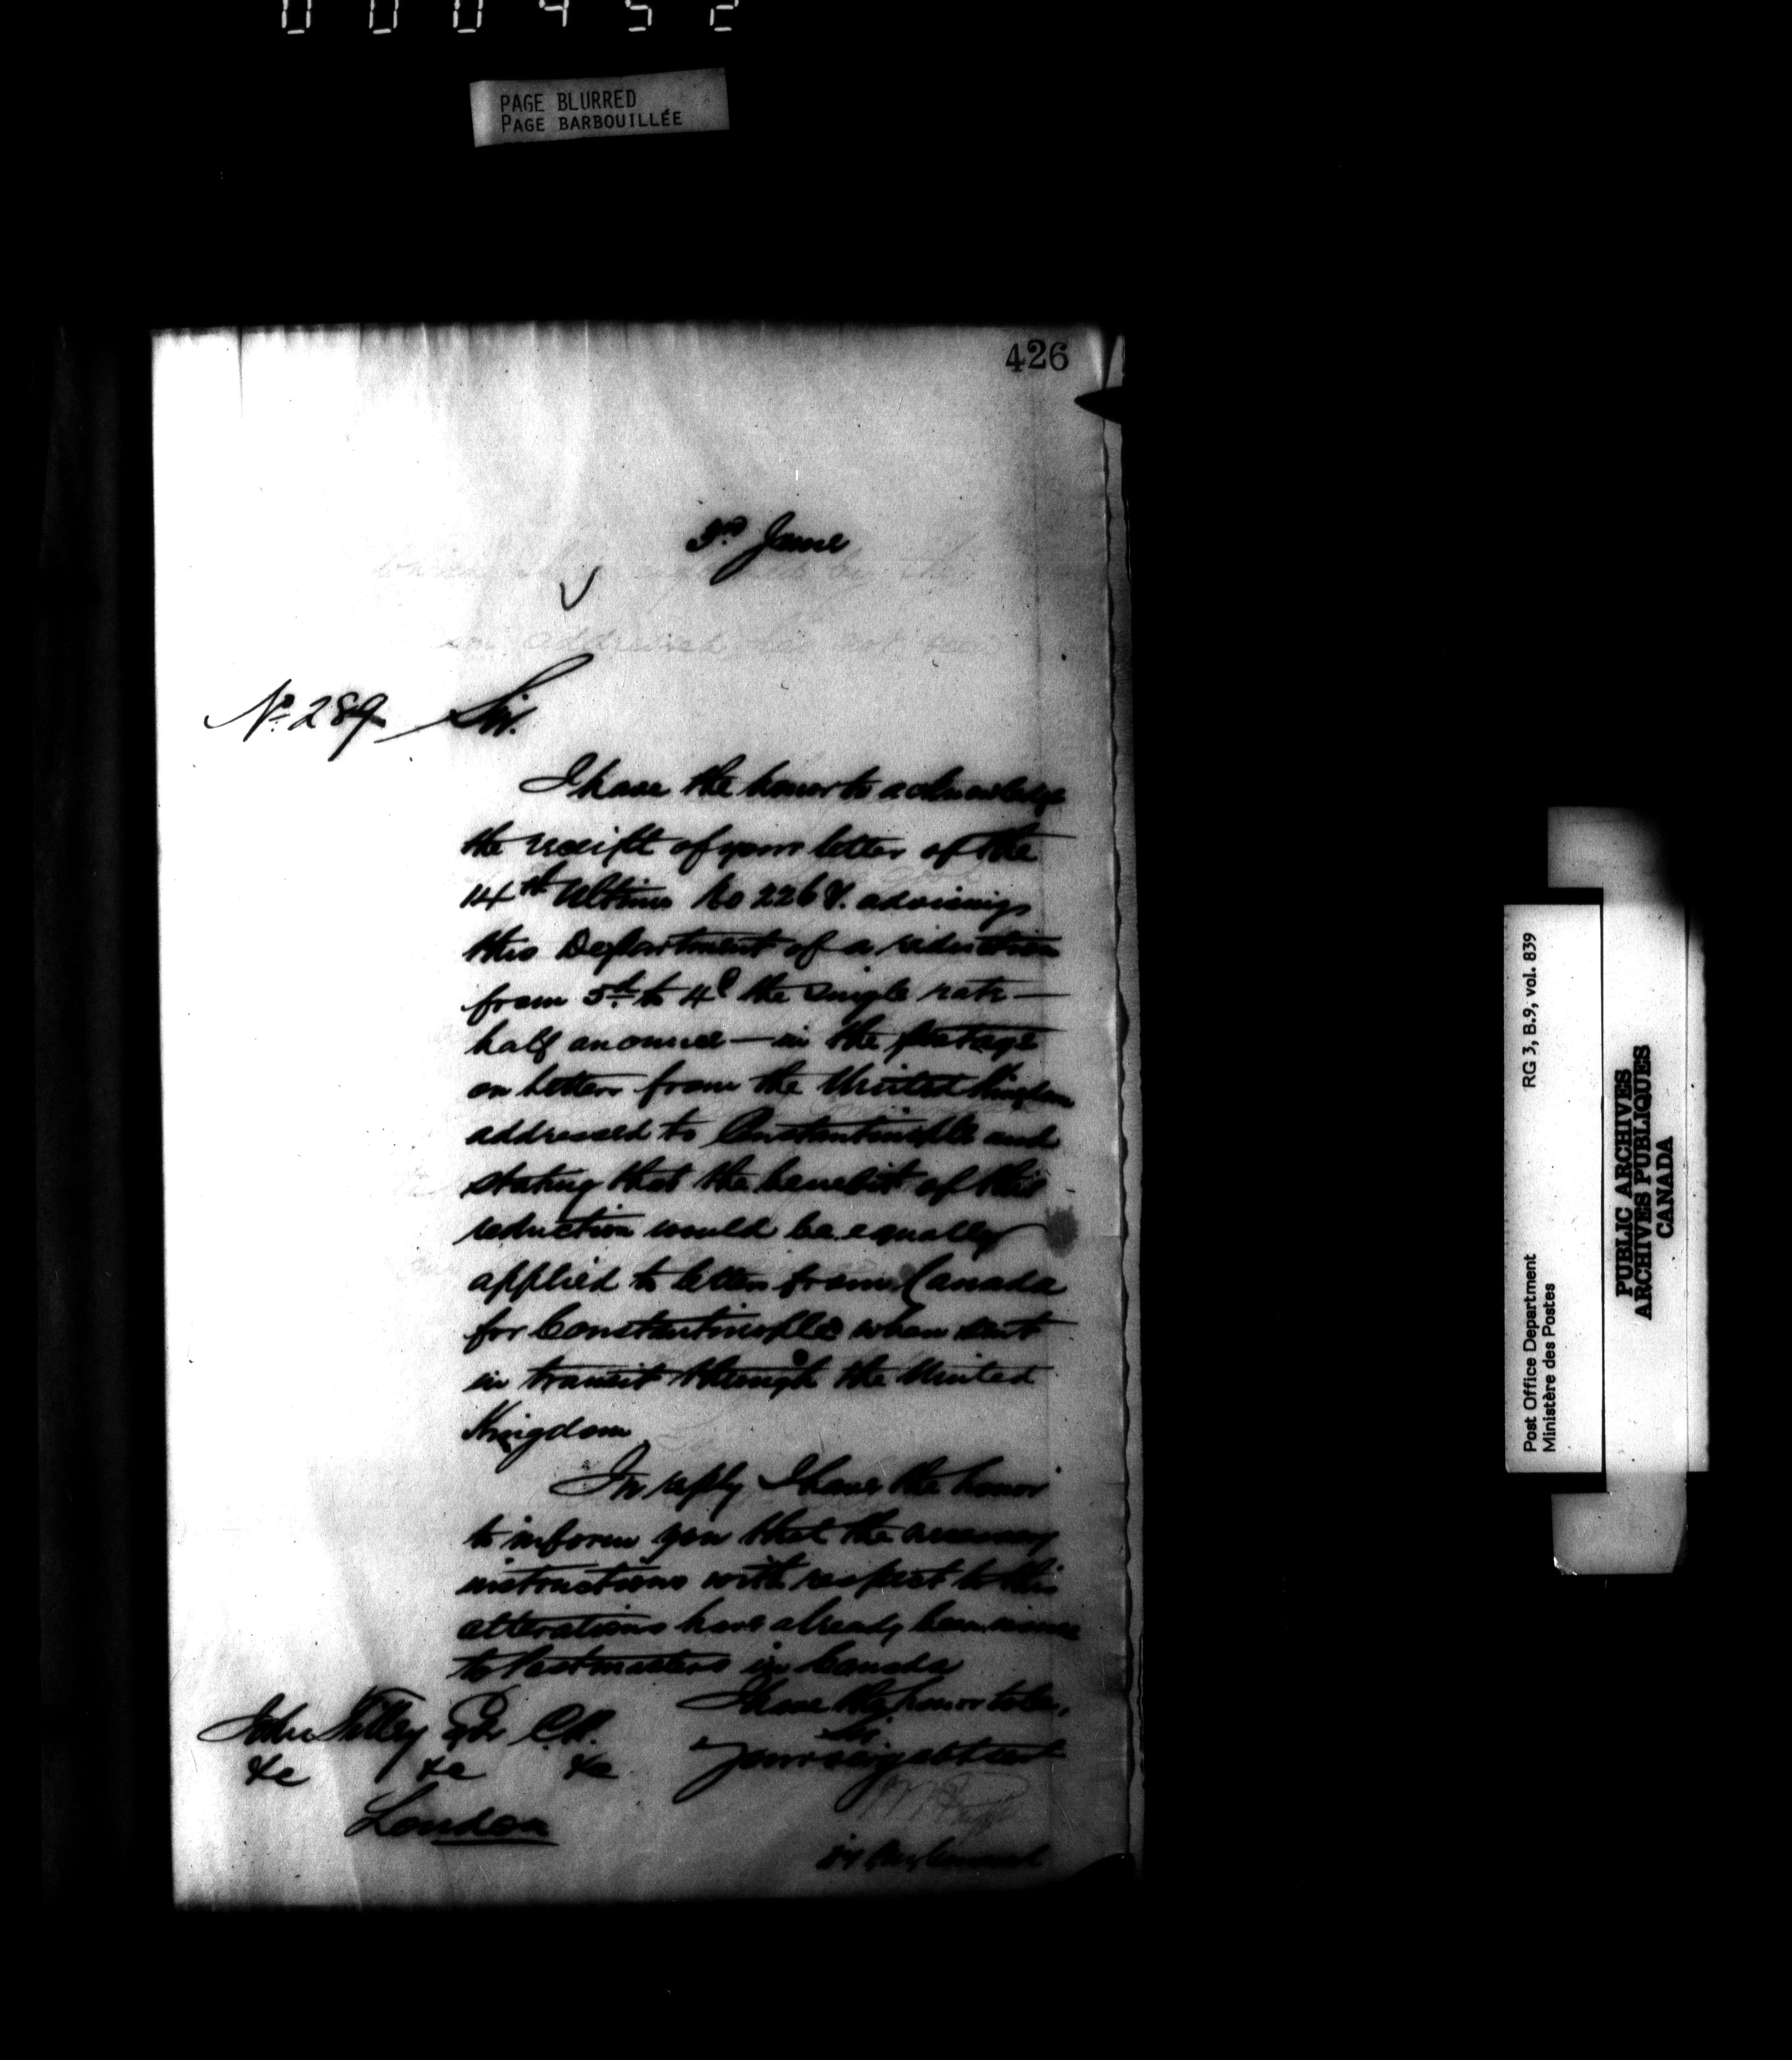 000452
PAGE BLURRED
PAGE BARBOUILLÉE
426
3rd June
No. 289
Sir.
I have the honor to acknowledge
the receipt of your letter of the
14th Ultimo No 226 Y. advising
this Department of a reduction
from 5d. to 4d the single rate —
half an ounce — in the postage
on letters from the United Kingdom
addressed to Constantinople and
stating that the benefit of this
reduction would be equally
applied to letters from Canada
for Constantinople when sent
in transit through the United
Kingdom
In reply I have the honor
to inform you that the necessary
instructions with respect to this
alterations have already been
to Postmasters in Canada
I have the honor to be,
Sir
Your obt sert
John Tilley Esq C.B.
&c &c &c
London
Post Office Department RG 3, B.9, vol. 839
Ministère des Postes
PUBLIC ARCHIVES
ARCHIVES PUBLIQUES
CANADA